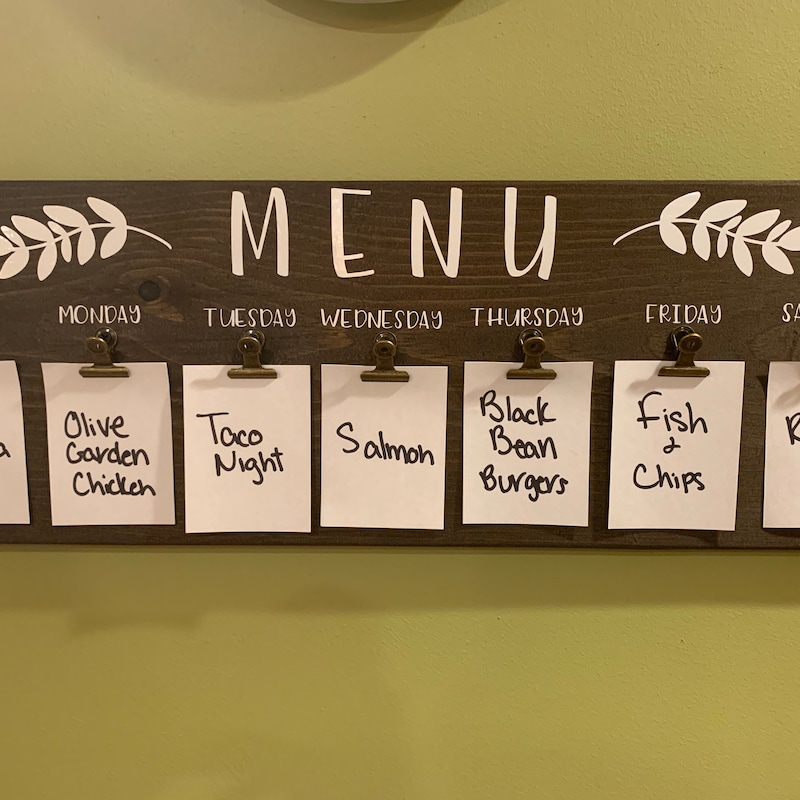 MENU
MONDAY TUESDAY WEDNESDAY THURSDAY FRIDAY
Olive
Garden
Chicken
Taco
Night
Salmon
Black
Bean
Burgers
Fish
&
Chips